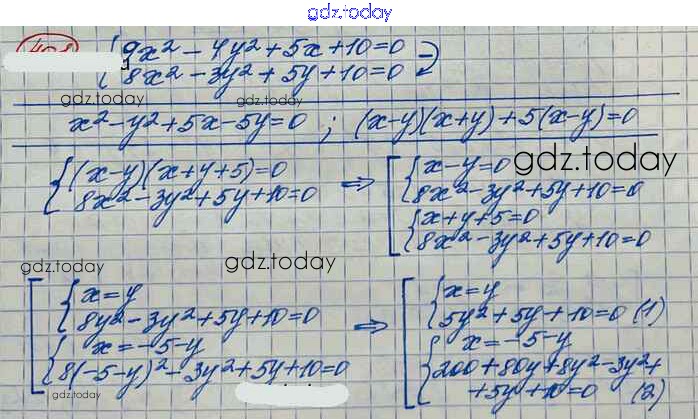 gdz.today
{ 9x² - 4y² + 5x + 10 = 0
{ 8x² - 3y² + 5y + 10 = 0
gdz.today gdz.today
x² - y² + 5x - 5y = 0 ; (x-y)(x+y) + 5(x-y) = 0
{ (x-y)(x+y+5) = 0
{ 8x² - 3y² + 5y + 10 = 0
⇒
[ { x - y = 0
{ 8x² - 3y² + 5y + 10 = 0
{ x + y + 5 = 0
{ 8x² - 3y² + 5y + 10 = 0
gdz.today
gdz.today
gdz.today
[ { x = y
{ 8y² - 3y² + 5y + 10 = 0
{ x = -5 - y
{ 8(-5-y)² - 3y² + 5y + 10 = 0
⇒
[ { x = y
{ 5y² + 5y + 10 = 0 (1)
{ x = -5 - y
{ 200 + 80y + 8y² - 3y² +
+ 5y + 10 = 0 (2)
gdz.today